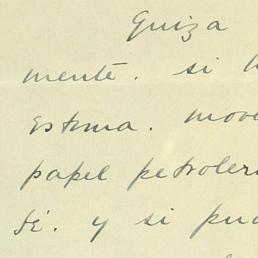 Quiza
mente. si
Estima. move
papel petroler
té. y si pud